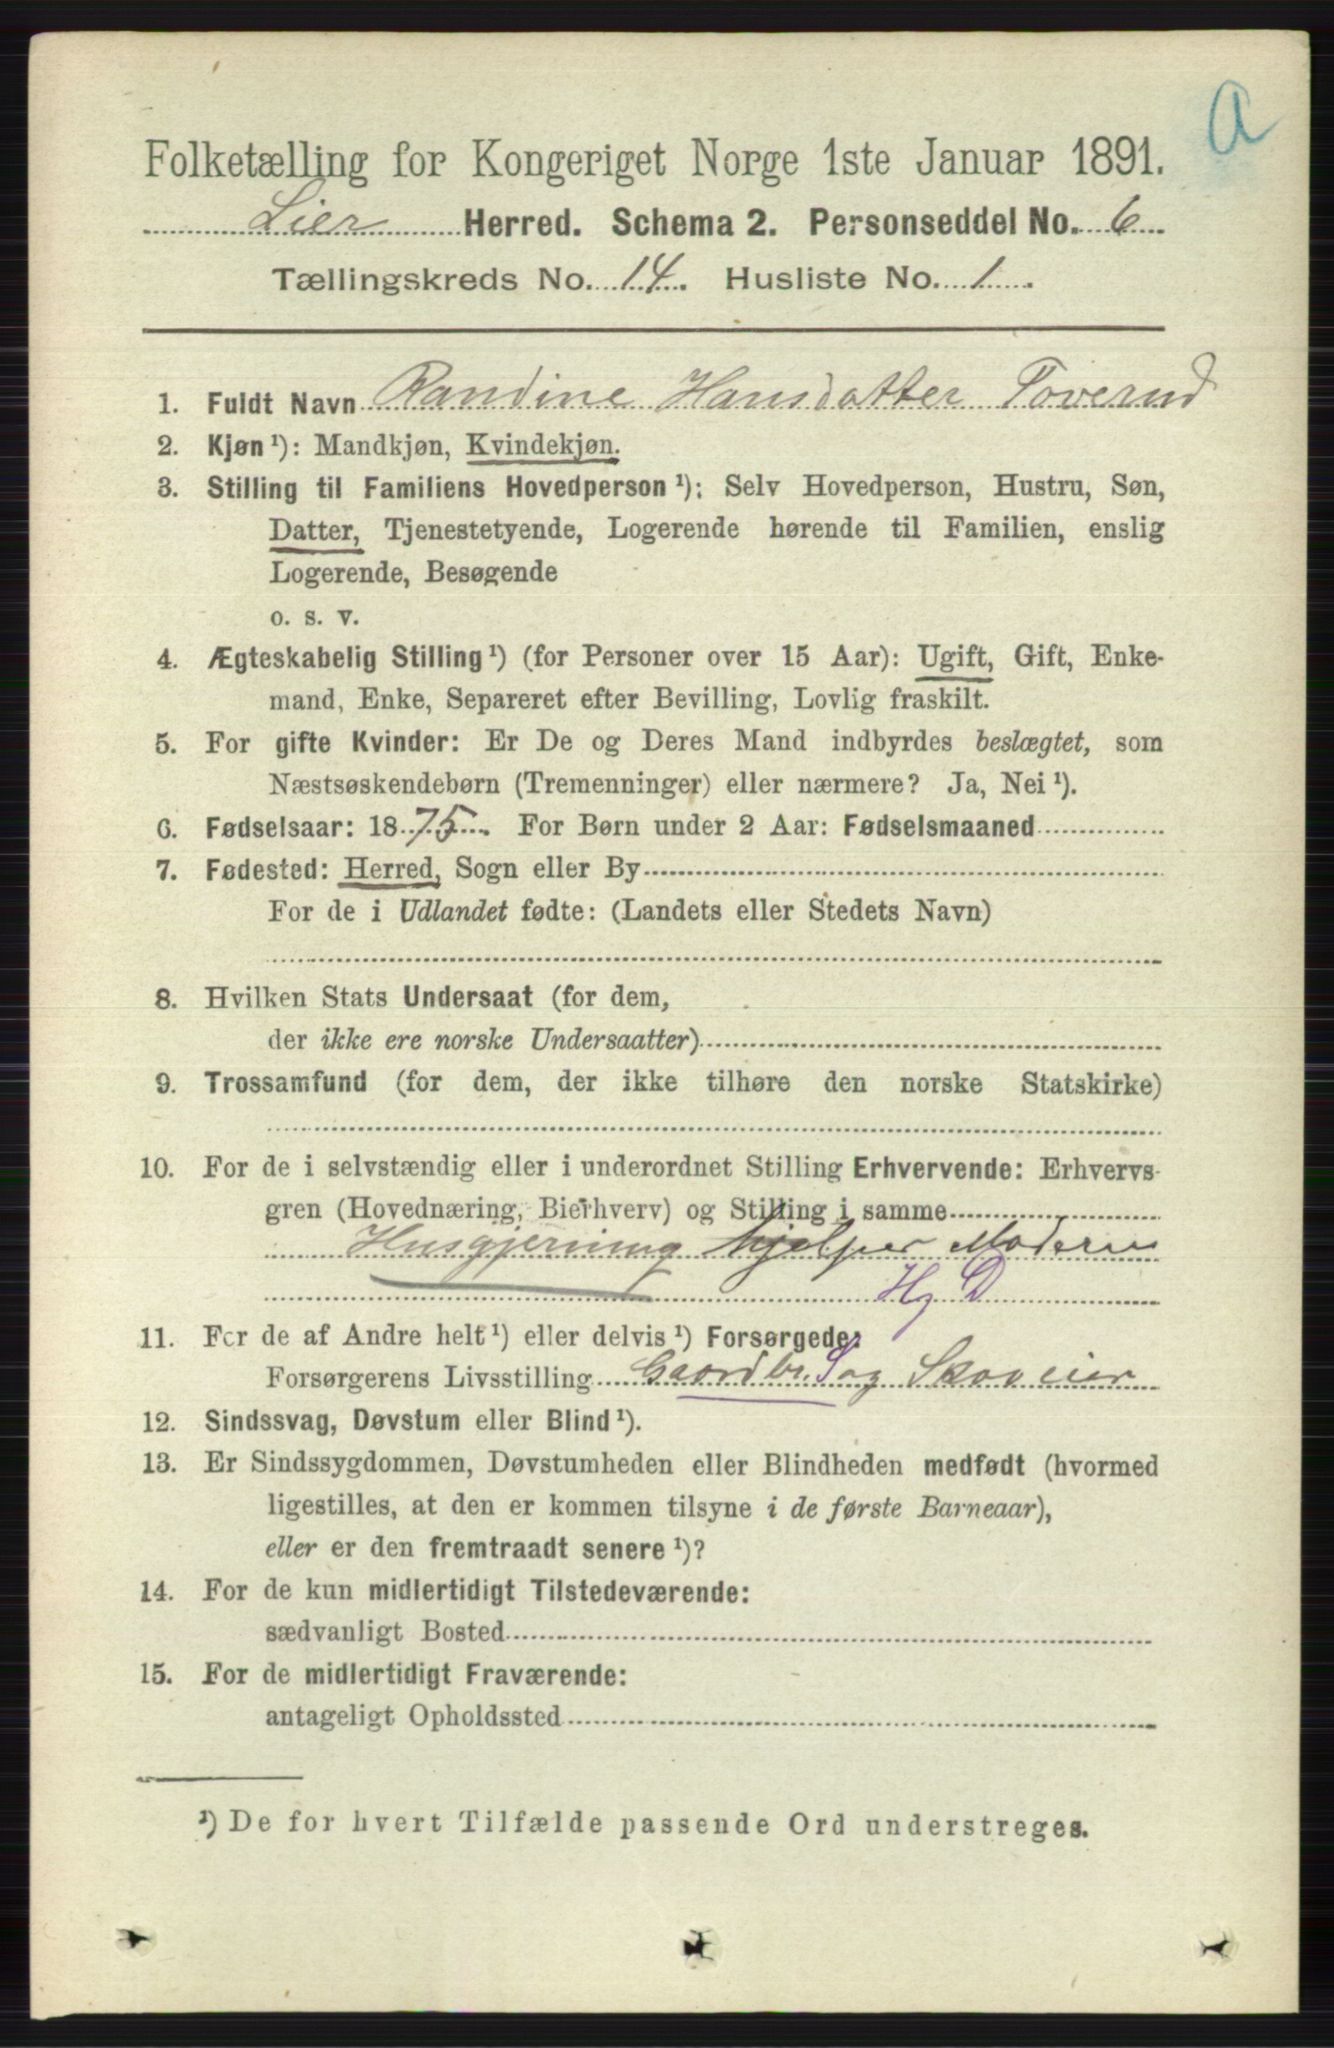 a
Folketælling for Kongeriget Norge 1ste Januar 1891.
Lier Herred. Schema 2. Personseddel No. 6
Tællingskreds No. 14. Husliste No. 1
1. Fuldt Navn Randine Hansdatter Toverud
2. Kjøn¹): Mandkjøn, Kvindekjøn.
3. Stilling til Familiens Hovedperson¹): Selv Hovedperson, Hustru, Søn,
Datter, Tjenestetyende, Logerende hørende til Familien, enslig
Logerende, Besøgende
o. s. v.
4. Ægteskabelig Stilling¹) (for Personer over 15 Aar): Ugift, Gift, Enke-
mand, Enke, Separeret efter Bevilling, Lovlig fraskilt.
5. For gifte Kvinder: Er De og Deres Mand indbyrdes beslægtet, som
Næstsøskendebørn (Tremenninger) eller nærmere? Ja, Nei¹).
6. Fødselsaar: 1875. For Børn under 2 Aar: Fødselsmaaned
7. Fødested: Herred, Sogn eller By
For de i Udlandet fødte: (Landets eller Stedets Navn)
8. Hvilken Stats Undersaat (for dem,
der ikke ere norske Undersaatter)
9. Trossamfund (for dem, der ikke tilhøre den norske Statskirke)
10. For de i selvstændig eller i underordnet Stilling Erhvervende: Erhvervs-
gren (Hovednæring, Bierhverv) og Stilling i samme
Husgjerning hjelper Moderen
Hg D
11. For de af Andre helt¹) eller delvis¹) Forsørgede:
Forsørgerens Livsstilling Gaardbr. S og Skoveier
12. Sindssvag, Døvstum eller Blind¹).
13. Er Sindssygdommen, Døvstumheden eller Blindheden medfødt (hvormed
ligestilles, at den er kommen tilsyne i de første Barneaar),
eller er den fremtraadt senere¹)?
14. For de kun midlertidigt Tilstedeværende:
sædvanligt Bosted
15. For de midlertidigt Fraværende:
antageligt Opholdssted
¹) De for hvert Tilfælde passende Ord understreges.